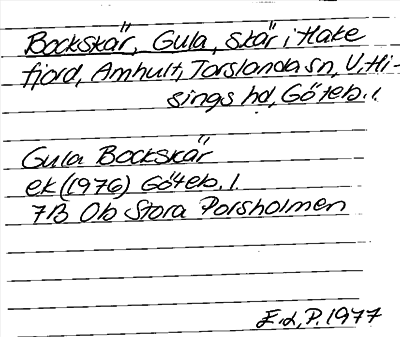 Bockskär, Gula, skär i Hake
fjord, Amhult, Torslanda sn, V. Hi-
sings hd, Göteb. l.
Gula Bockskär
ek (1976) Göteb. l.
7B Ob Stora Porsholmen
P. 1977